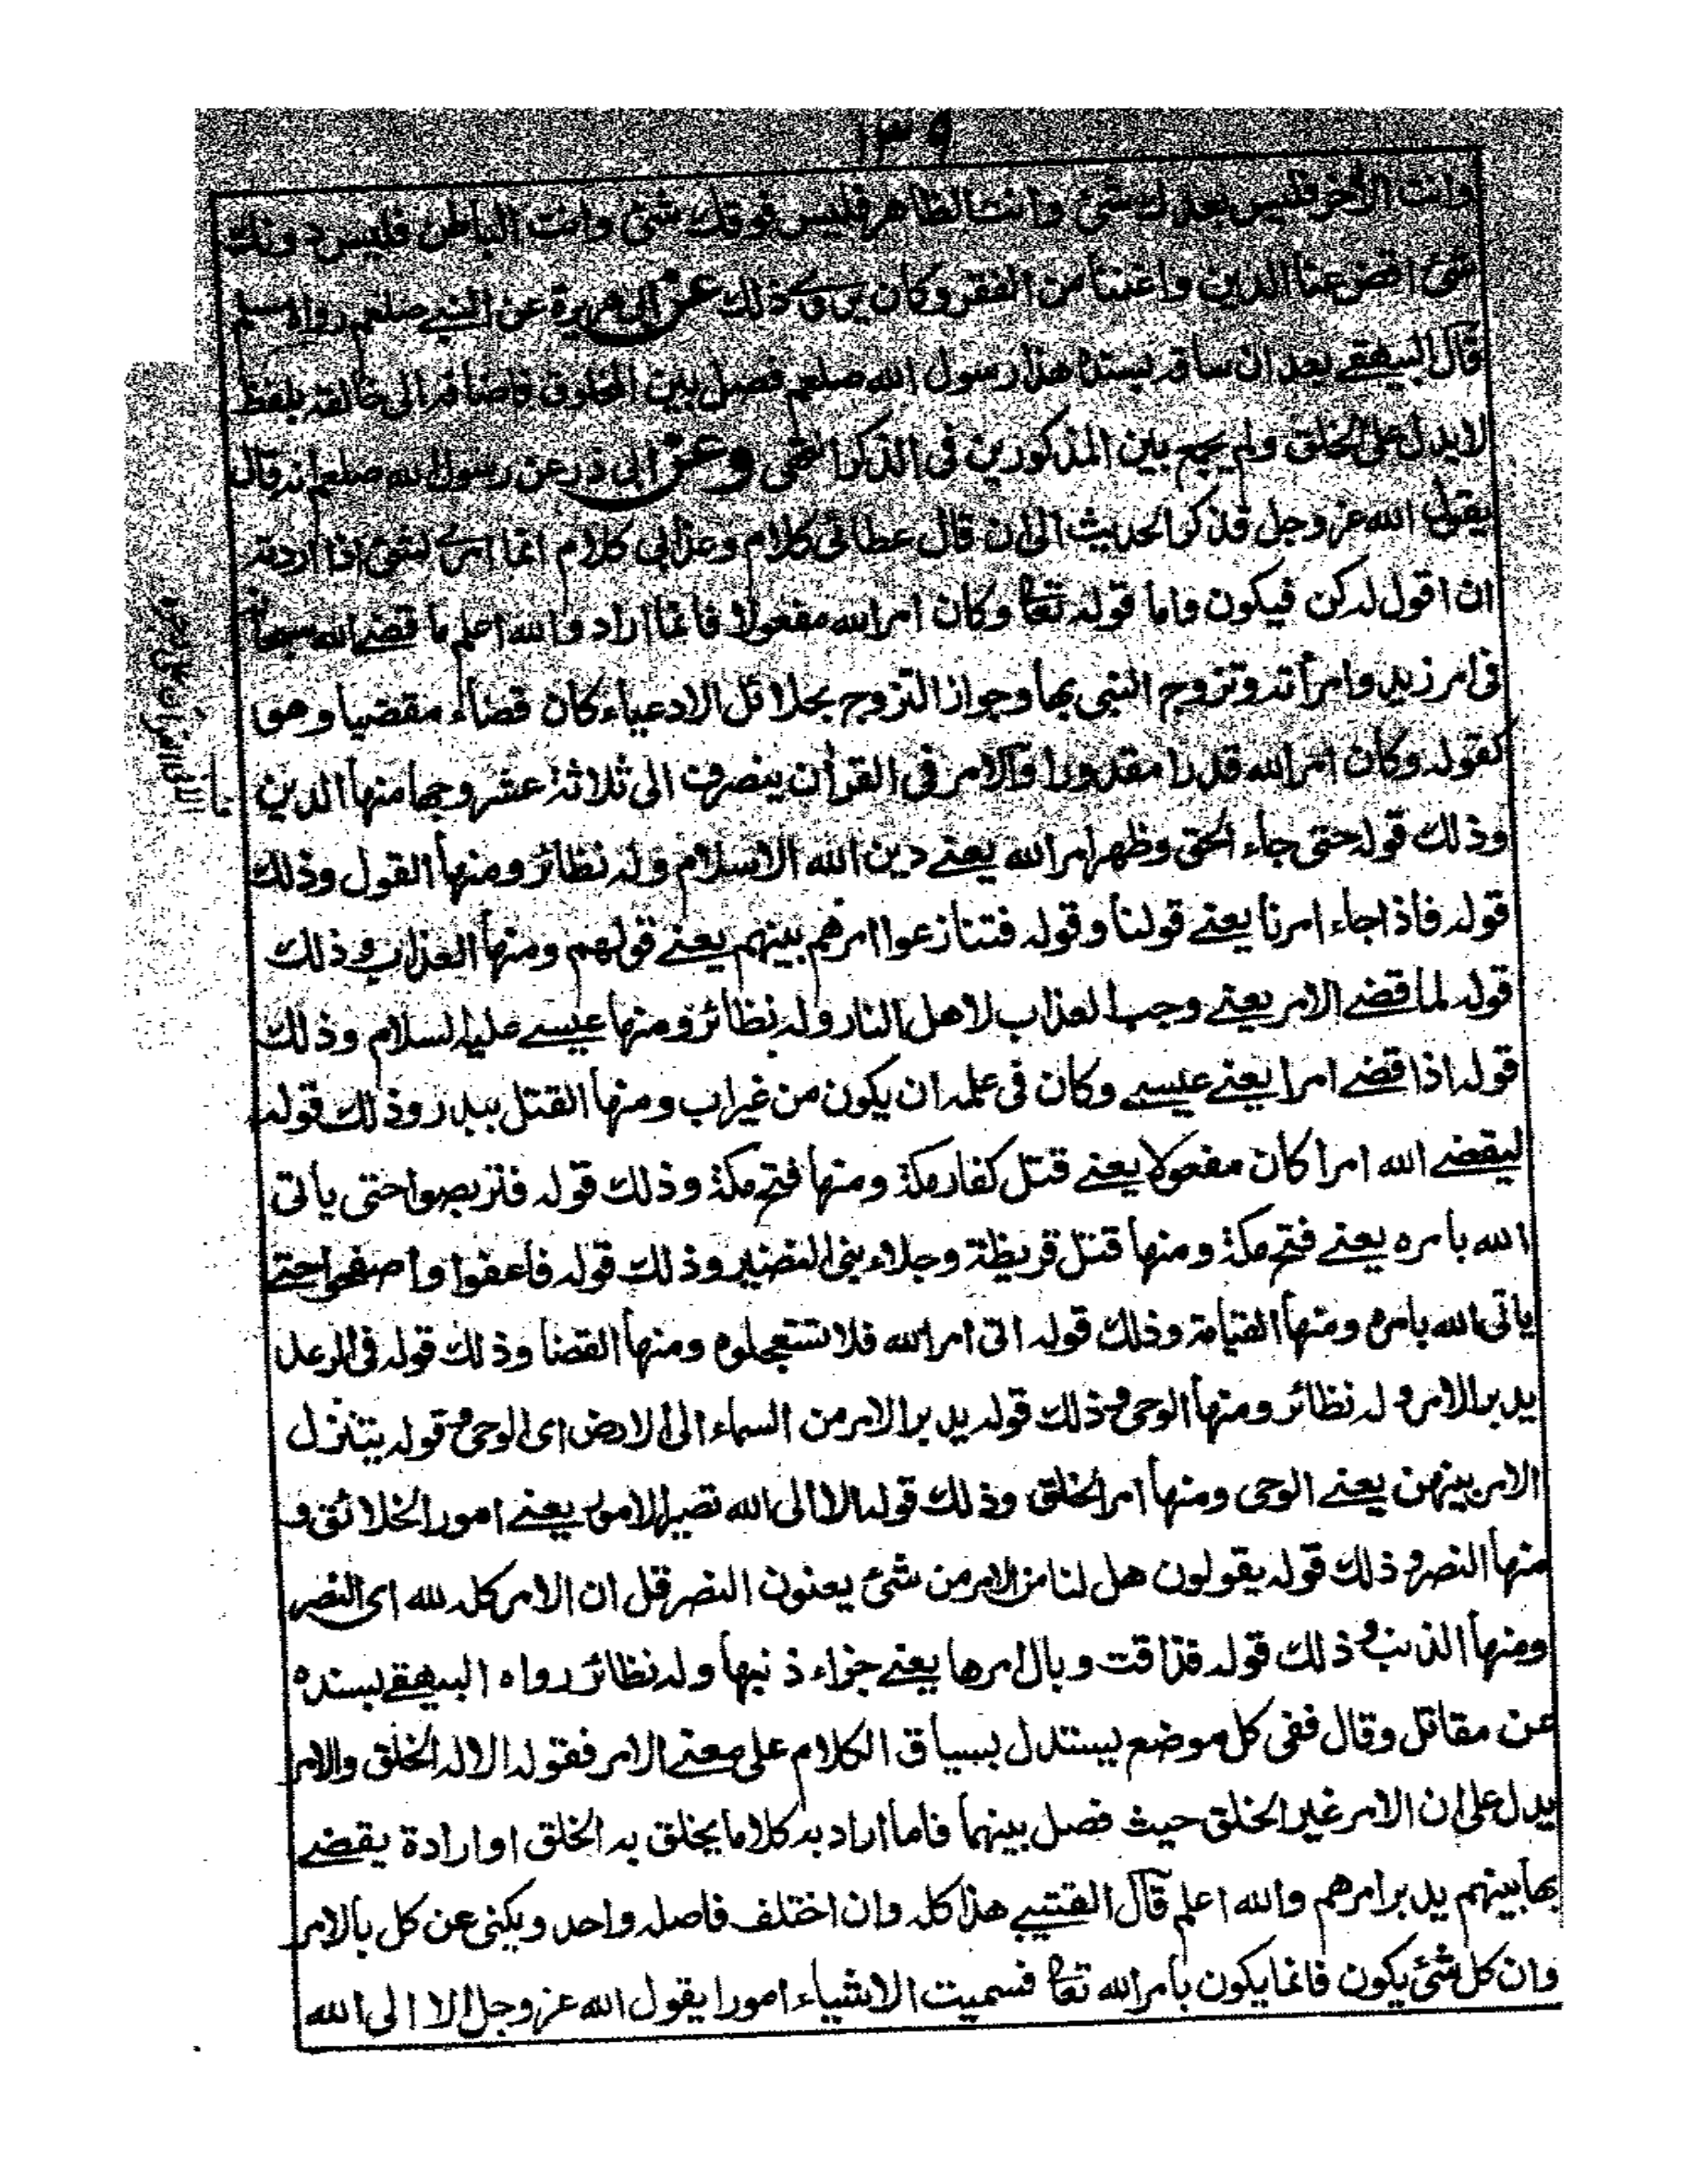 ١٣٩
وانت الاخر فليس بعدك شئ وانت الظاهر فليس فوقك شئ وانت الباطن فليس دونك
شئ اقض عنا الدين واغننا من الفقر وكان يروى ذلك عن ابى هريرة عن النبى صلعم رواه مسلم
قال البيهقى بعد ان ساقه بسنده هذا رسول الله صلعم فصل بين المخلوق فاضافه الى خالقه بلفظ
لا يدل على الخلق ولم يجمع بين المذكورين فى الذكر انتهى وعن ابى ذر عن رسول الله صلعم انه قال
يقول الله عز وجل فذكر الحديث الى ان قال عطائى كلام وعذابى كلام انما امرى لشئ اذا اردته
ان اقول له كن فيكون واما قوله تعا وكان امر الله مفعولا فانما اراد والله اعلم ما قضى الله سبحانه
فى امر زيد وامرأته وتزوج النبى بها وجواز التزوج بحلائل الادعياء كان قضاء مقضيا وهو
كقوله وكان امر الله قدرا مقدورا والامر فى القرأن ينصرف الى ثلاثة عشر وجها منها الدين
وذلك قوله حتى جاء الحق وظهر امر الله يعنى دين الله الاسلام وله نظائر ومنها القول وذلك
قوله فاذا جاء امرنا يعنى قولنا وقوله فتنازعوا امرهم بينهم يعنى قولهم ومنها العذاب وذلك
قوله لما قضى الامر يعنى وجب العذاب لاهل النار وله نظائر ومنها عيسى عليه السلام وذلك
قوله اذا قضى امرا يعنى عيسى وكان فى علمه ان يكون من غير اب ومنها القتل ببدر وذلك قوله
ليقضى الله امرا كان مفعولا يعنى قتل كفار مكة ومنها فتح مكة وذلك قوله فتربصوا حتى يأتى
الله بامره يعنى فتح مكة ومنها قتل قريظة وجلاء بنى النضير وذلك قوله فاعفوا واصفحوا حتى
ياتى الله بامره ومنها القيامة وذلك قوله اتى امر الله فلا تستعجلوه ومنها القضا وذلك قوله فى الرعد
يدبر الامر وله نظائر ومنها الوحى وذلك قوله يدبر الامر من السماء الى الارض اى الوحى وقوله يتنزل
الامر بينهن يعنى الوحى ومنها امر الخلق وذلك قوله الا الى الله تصير الامور يعنى امور الخلائق و
منها النصر وذلك قوله يقولون هل لنا من الامر من شئ يعنون النصر قل ان الامر كله لله اى النصر
ومنها الذنب وذلك قوله فذاقت وبال امرها يعنى جزاء ذنبها وله نظائر رواه البيهقى بسنده
عن مقاتل وقال ففى كل موضع يستدل بسياق الكلام على معنى الامر فقوله الا له الخلق والامر
يدل على ان الامر غير الخلق حيث فصل بينهما فاما اراد به كلاما يخلق به الخلق او ارادة يقضى
بها بينهم يدبر امرهم والله اعلم قال القتيبى هذا كله وان اختلف فاصله واحد ويكنى عن كل بالامر
وان كل شئ يكون فانما يكون بأمر الله تعا فسميت الاشياء امورا يقول الله عز وجل الا الى الله